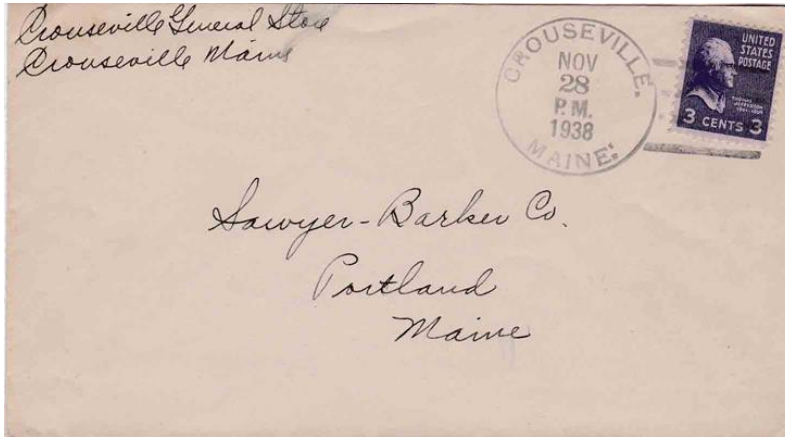 Crouseville General Store
Crouseville Maine
CROUSEVILLE.
NOV
28
P.M.
1938
MAINE.
UNITED
STATES
POSTAGE
THOMAS
JEFFERSON
3 CENTS 3
Sawyer-Barker Co.
Portland
Maine